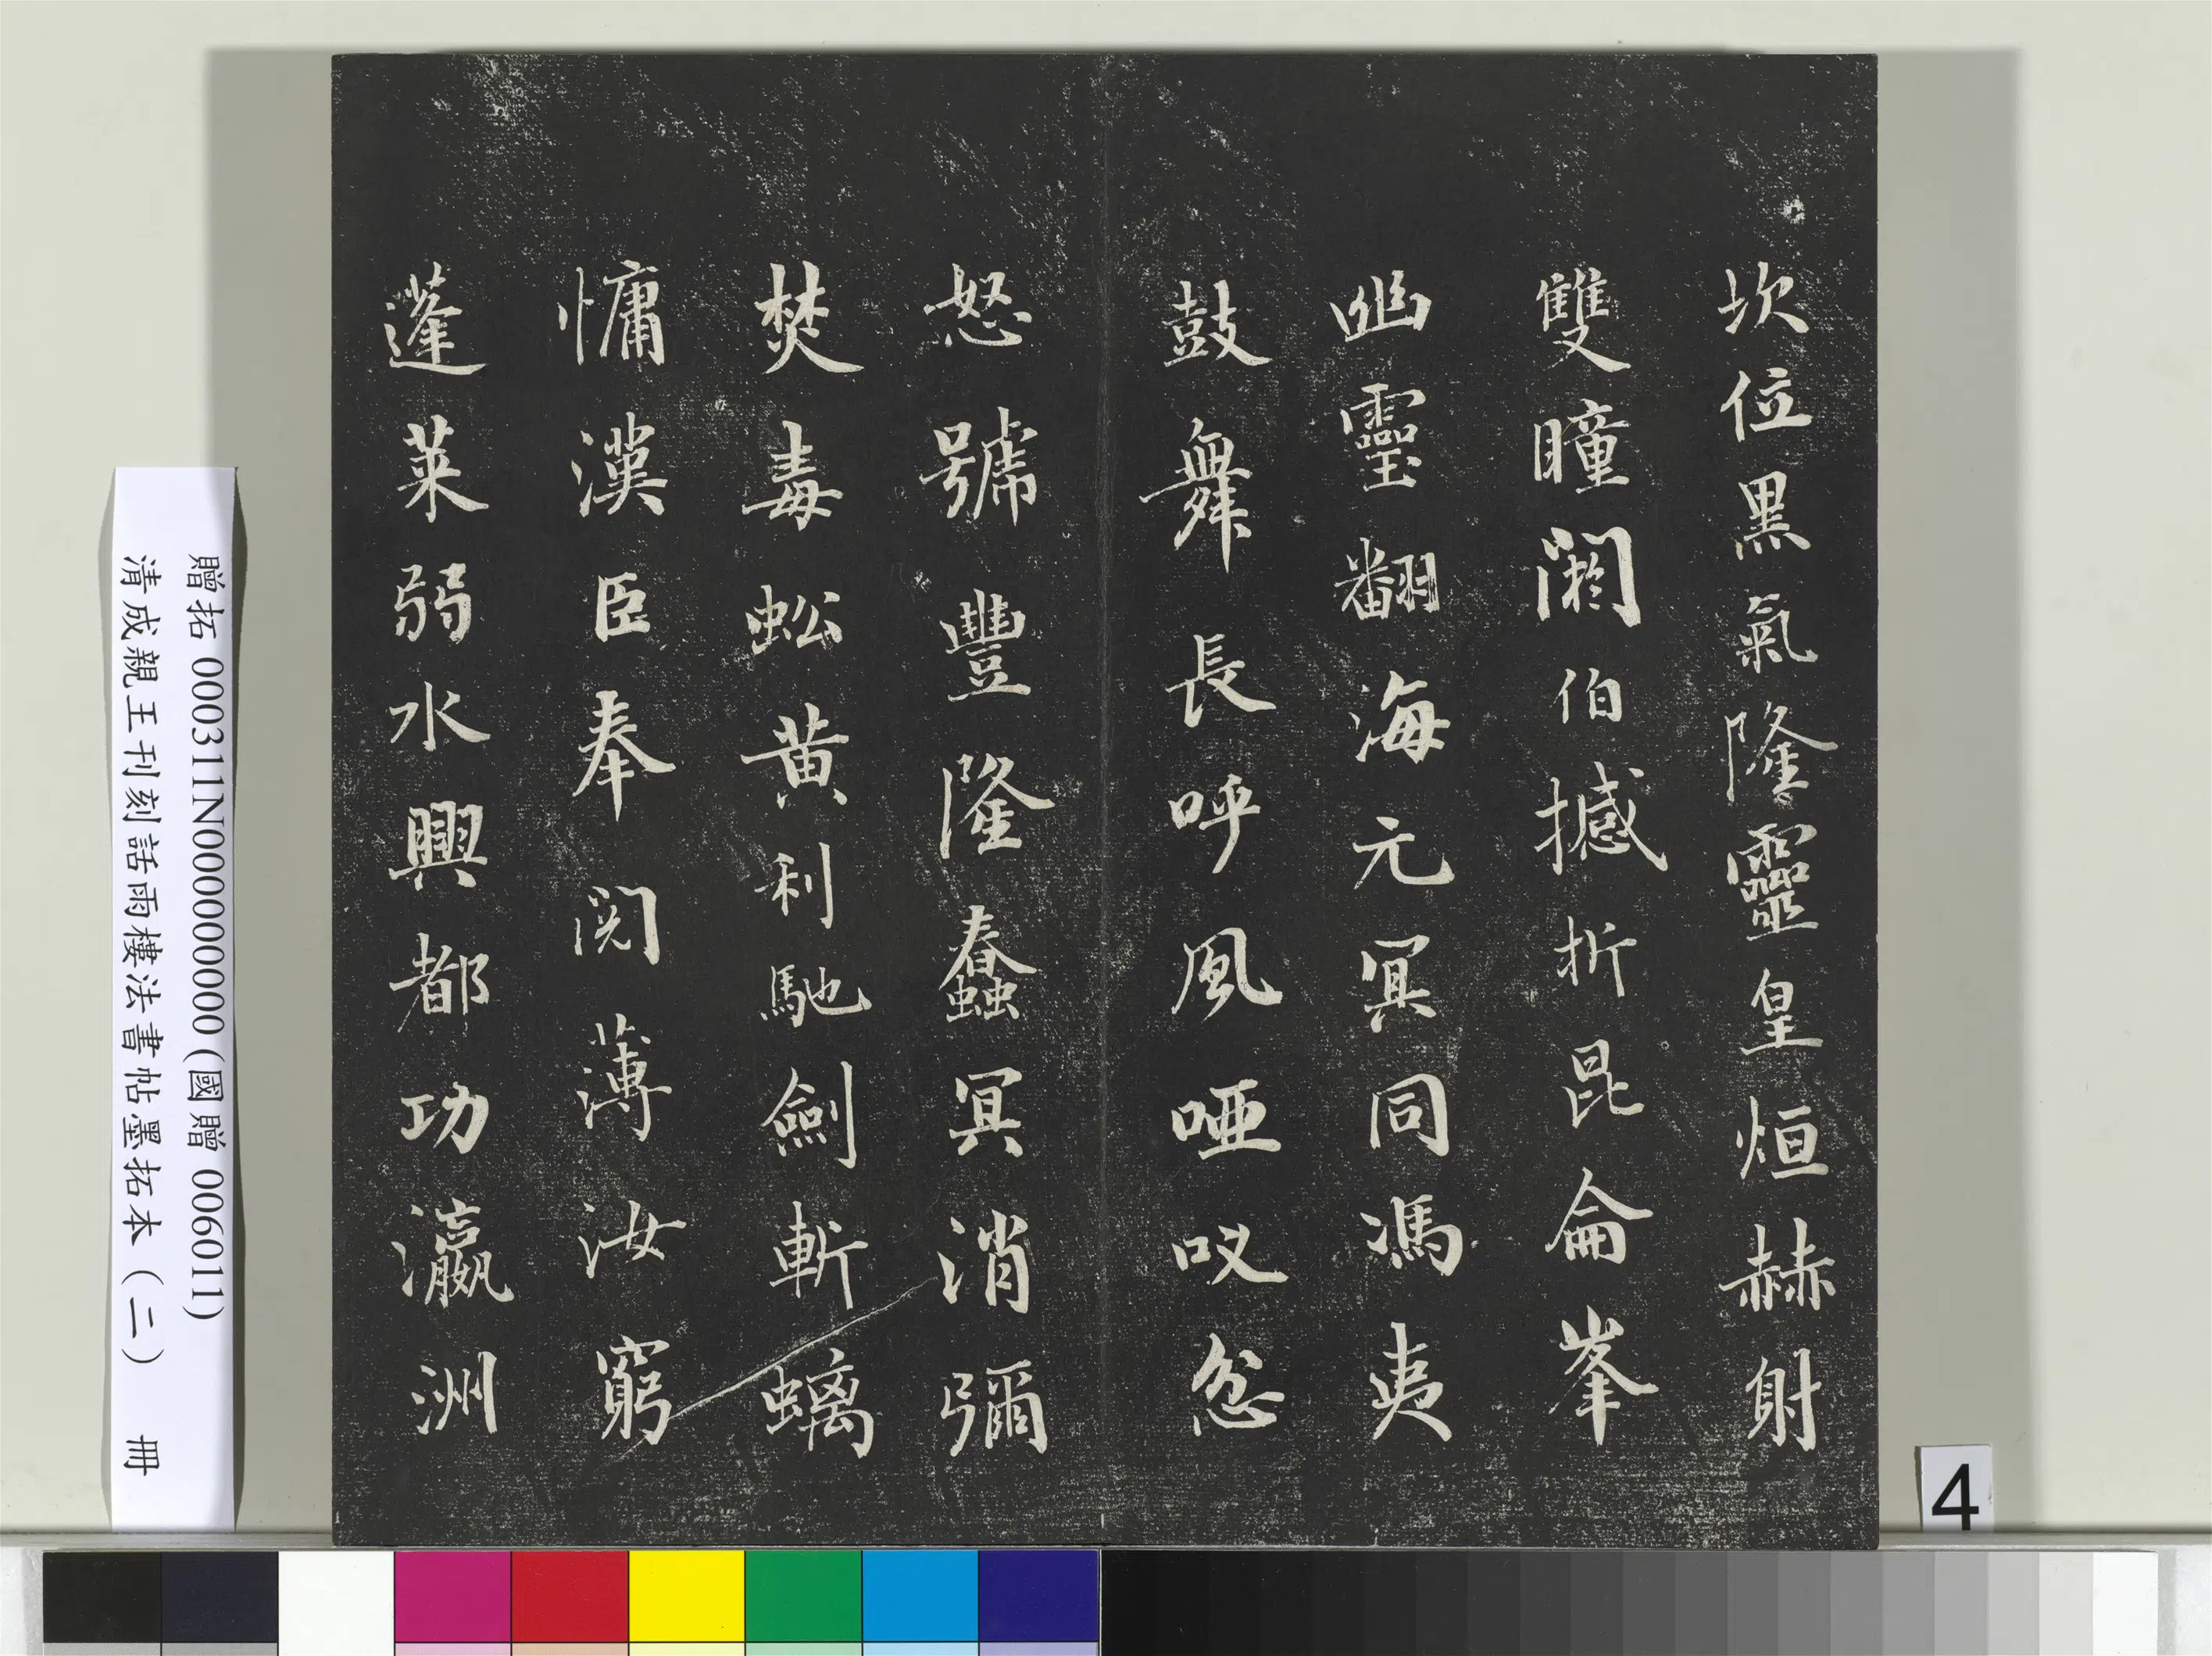 坎位黑氣隆靈皇烜赫射
雙瞳閼伯撼折昆侖峯
幽靈翻海元冥同馮夷
鼓舞長呼風啞㕮忿
怒號豐隆蠢冥消彌
焚毒蚣黄利馳劍斬螭
慵漢臣奉闵薄汝窮
蓬萊弱水興都功瀛洲
贈拓 000311N000000000(國贈 006011)
清成親王刊刻話雨樓法書帖墨拓本(二) 冊
4